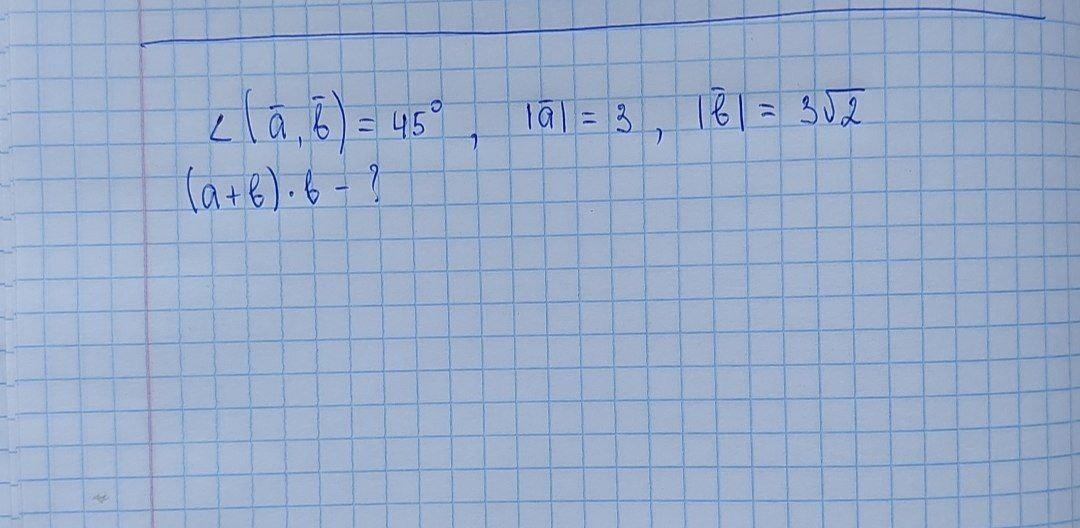 ∠(a̅, b̅) = 45°, |a̅| = 3, |b̅| = 3√2
(a+b)·b - ?